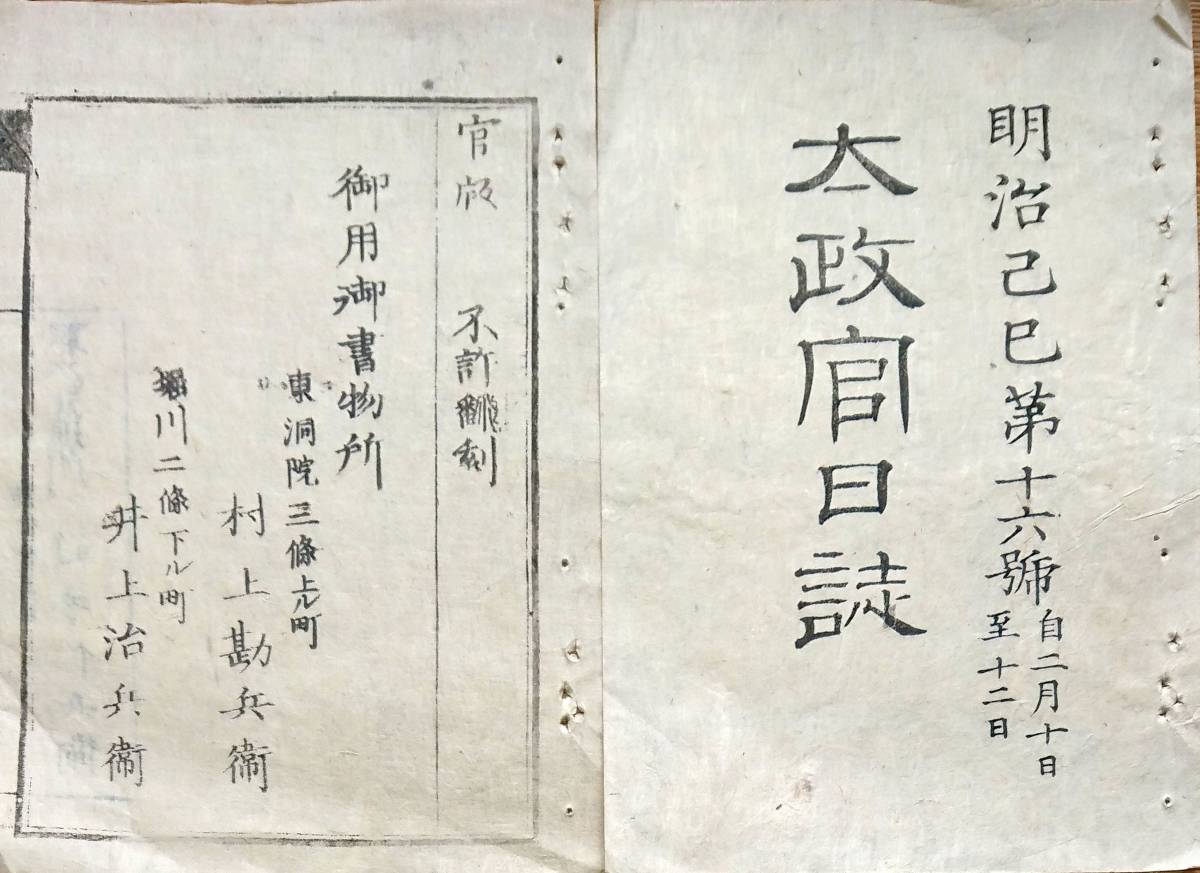 明治己巳第十六號自二月十日
至十二日
太政官日誌
官版 不許飜刻
御用御書物所
東洞院三條上ル町
村上勘兵衞
堀川二條下ル町
井上治兵衞